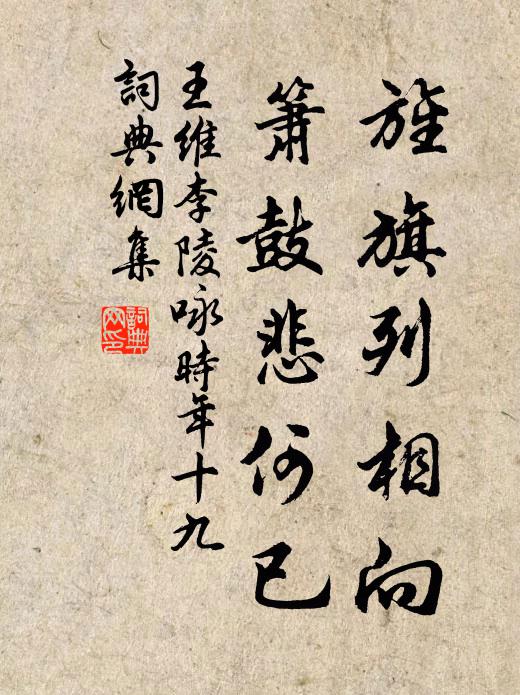 旌旗列相向
簫鼓悲何已
王維李陵咏時年十九
詞典網集
詞典
网印